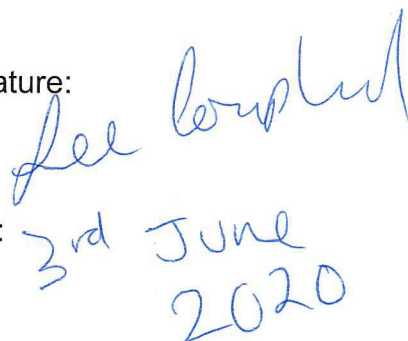 ature:
Lee Campbell
:
3rd June
2020